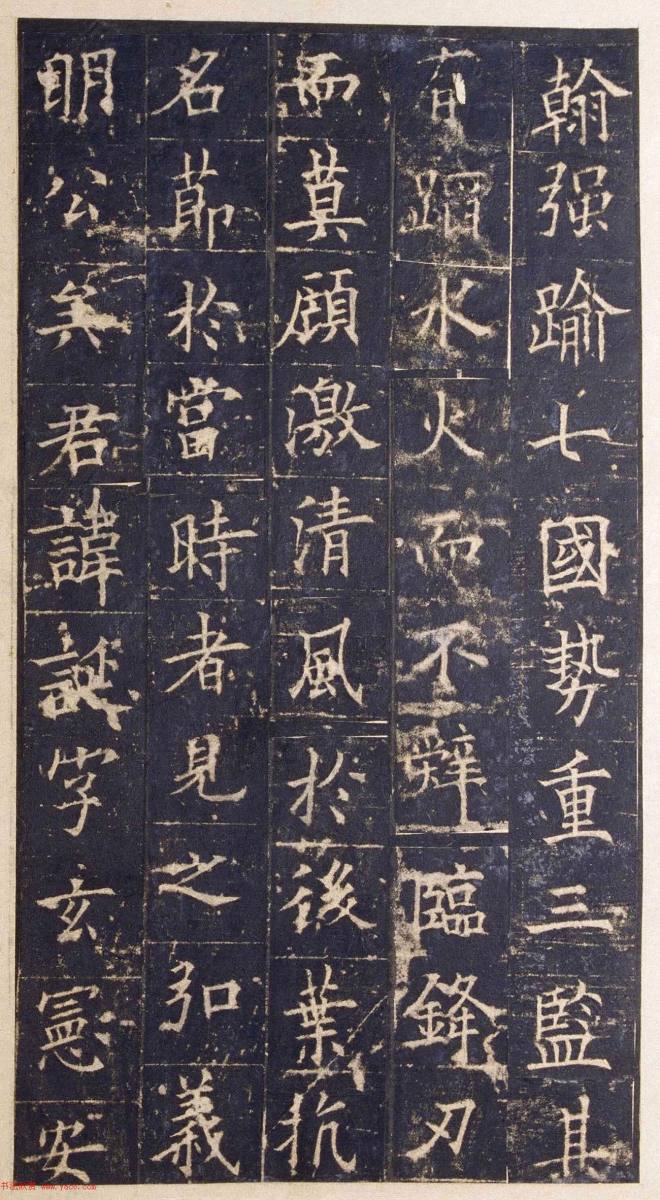 翰强踰七國勢重三監其
有蹈水火而不辭臨鋒刃
而莫顧激清風於後葉抗
名節於當時者見之弘義
明公矣君諱誕字玄憲安
书法欣赏 www.yac8.com